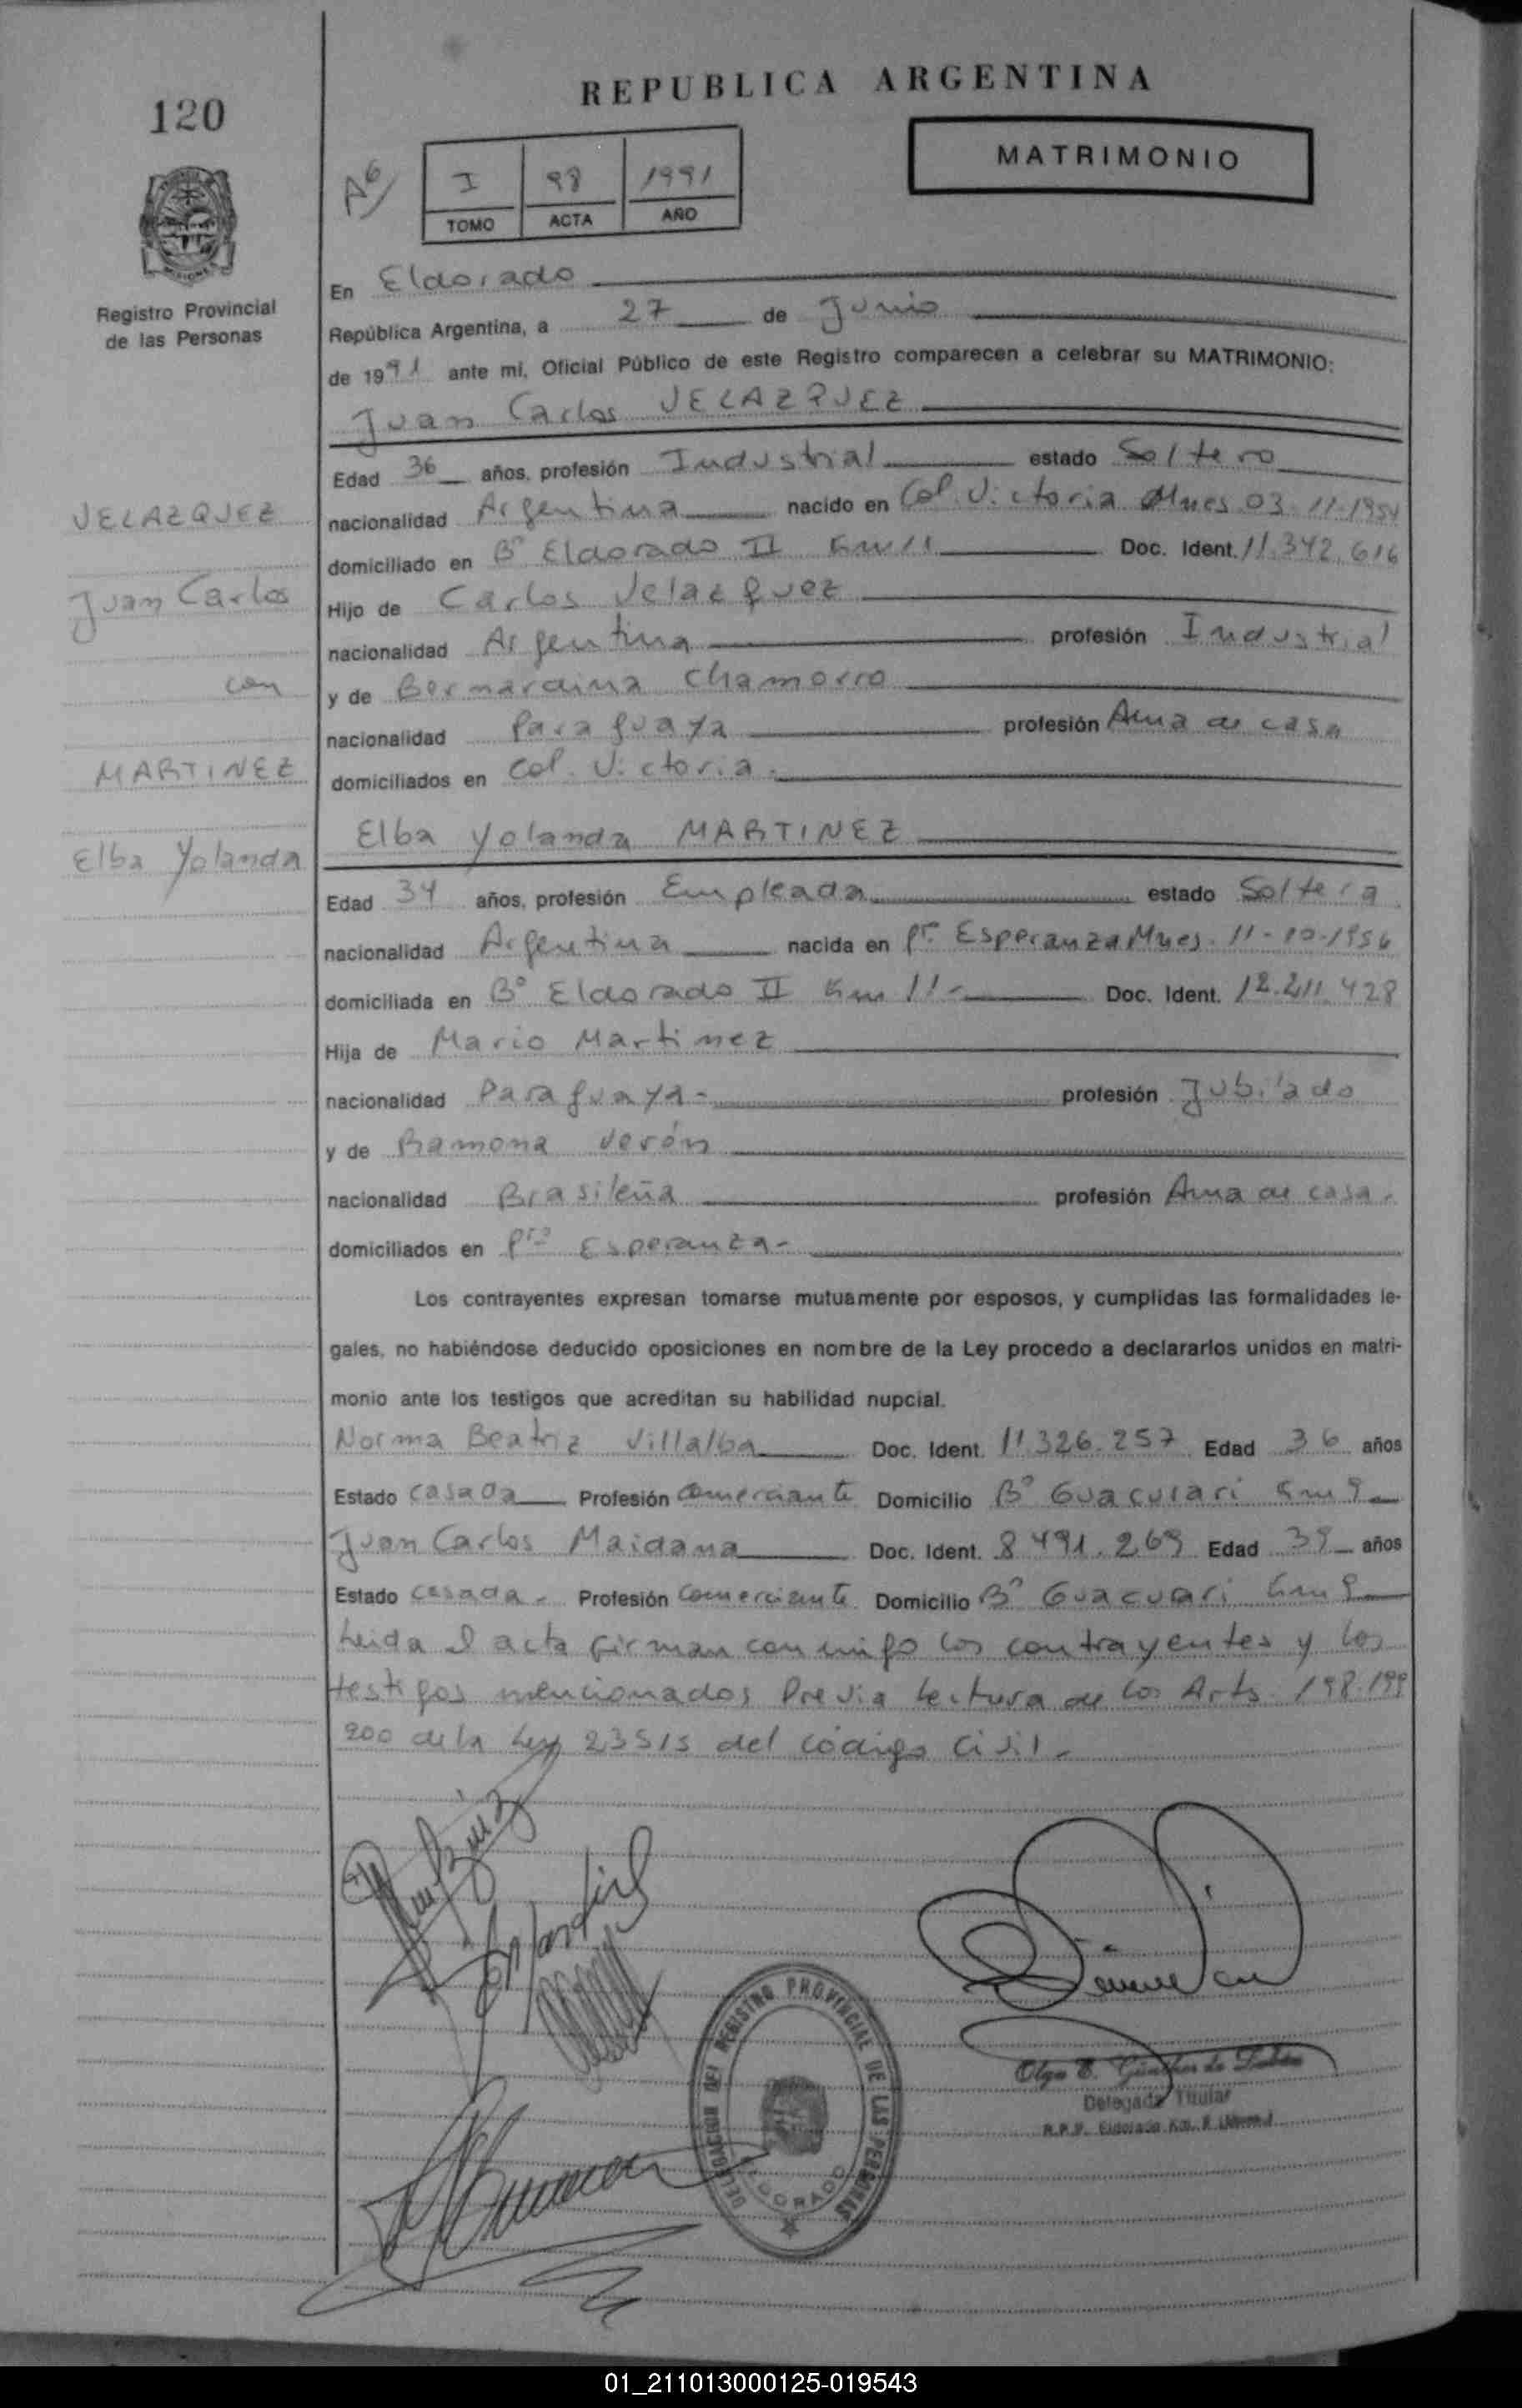 REPUBLICA ARGENTINA
120
MATRIMONIO
A6
I 98 1991
TOMO ACTA AÑO
MISIONES
Registro Provincial
de las Personas
En Eldorado
República Argentina, a 27 de Junio
de 1991 ante mi, Oficial Público de este Registro comparecen a celebrar su MATRIMONIO:
Juan Carlos VELAZQUEZ
Edad 36 años, profesión Industrial estado Soltero
VELAZQUEZ
nacionalidad Argentina nacido en Col. Victoria Mnes 03-11-1954
domiciliado en Bº Eldorado II Km 11 Doc. Ident. 11.342.616
Juan Carlos
Hijo de Carlos Velazquez
nacionalidad Argentina profesión Industrial
con
y de Bernardina Chamorro
nacionalidad Paraguaya profesión Ama de casa
MARTINEZ
domiciliados en Col. Victoria.
Elba Yolanda MARTINEZ
Elba Yolanda
Edad 34 años, profesión Empleada estado Soltera
nacionalidad Argentina nacida en Pto Esperanza Mnes. 11-10-1956
domiciliada en Bº Eldorado II Km 11- Doc. Ident. 12.211.428
Hija de Mario Martinez
nacionalidad Paraguaya- profesión Jubilado
y de Ramona Verón
nacionalidad Brasileña profesión Ama de casa.
domiciliados en Pto Esperanza-
Los contrayentes expresan tomarse mutuamente por esposos, y cumplidas las formalidades le-
gales, no habiéndose deducido oposiciones en nombre de la Ley procedo a declararlos unidos en matri-
monio ante los testigos que acreditan su habilidad nupcial.
Norma Beatriz Villalba Doc. Ident. 11.326.257 Edad 36 años
Estado casada Profesión comerciante Domicilio Bº Guacurari Km 9
Juan Carlos Maidana Doc. Ident. 8491.269 Edad 39 años
Estado casada - Profesión comerciante Domicilio Bº Guacurari Km 9
Leida el acta firman conmigo los contrayentes y los
testigos mencionados Previa lectura de los Arts. 198-199
200 de la Ley 23515 del código civil-
DELEGACION DEL REGISTRO PROVINCIAL DE LAS PERSONAS
ELDORADO
Olga E. Günther de
Delegada Titular
R.P.P. Eldorado Km.
01_211013000125-019543